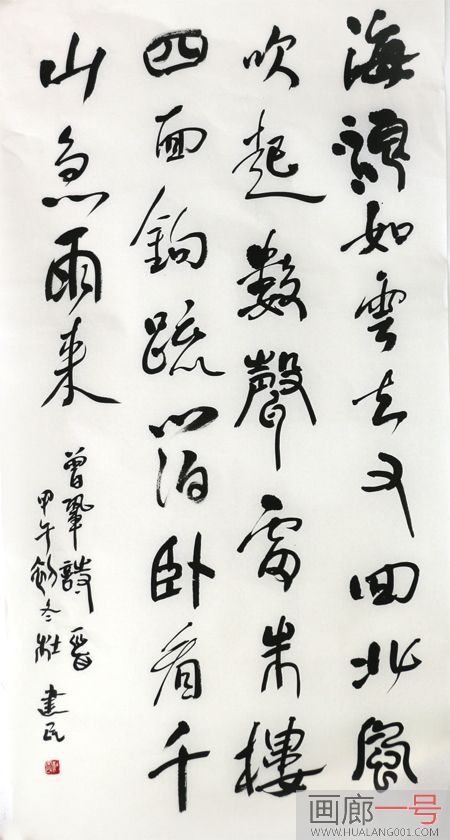 海浪如雲去又回北風
吹起数聲雷朱樓
四面鈎疏箔卧看千
山急雨来
曾鞏詩一首
甲午初冬 建民
画廊一号
WWW.HUALANG001.COM